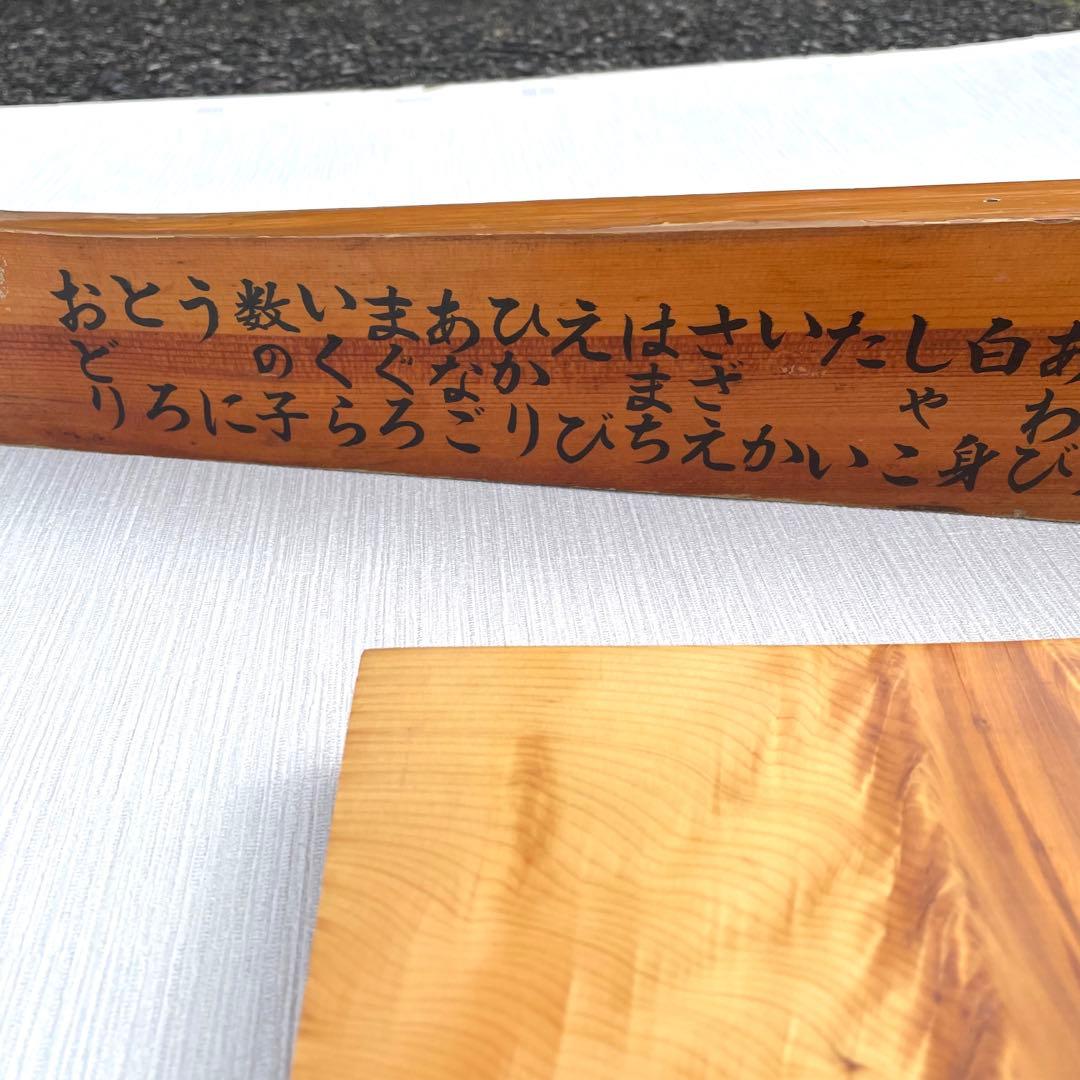 あわび
白身
しゃこ
たい
いか
さざえ
はまち
えび
ひかり
あなご
まぐろ
いくら
数の子
うに
とろ
おどり